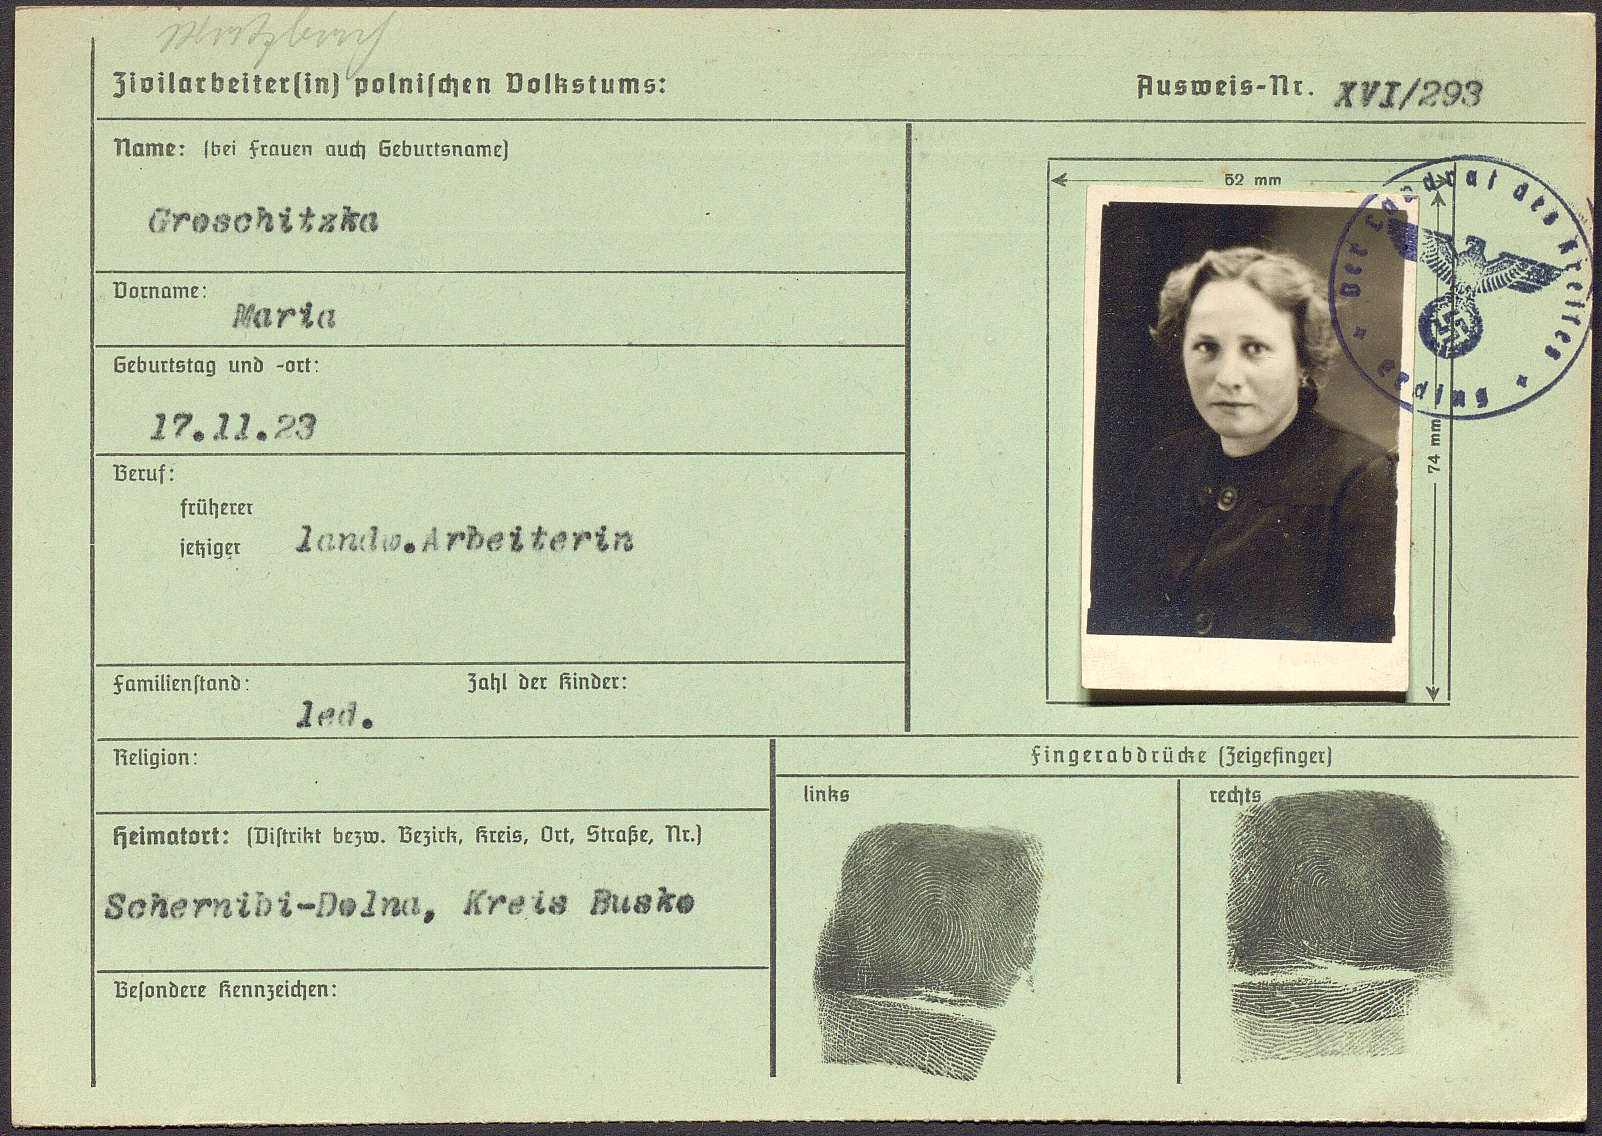 Zivilarbeiter(in) polnischen Volkstums:
Ausweis-Nr. XVI/293
Name: (bei Frauen auch Geburtsname)
Groschitzka
Vorname:
Maria
Geburtstag und -ort:
17.11.23
Beruf:
früherer
jetziger landw.Arbeiterin
Familienstand: Zahl der Kinder:
led.
Religion:
Heimatort: (Distrikt bezw. Bezirk, Kreis, Ort, Straße, Nr.)
Schernibi-Dolna, Kreis Busko
Besondere Kennzeichen:
52 mm
74 mm
Der Landrat des Kreises Erding
Fingerabdrücke (Zeigefinger)
links
rechts